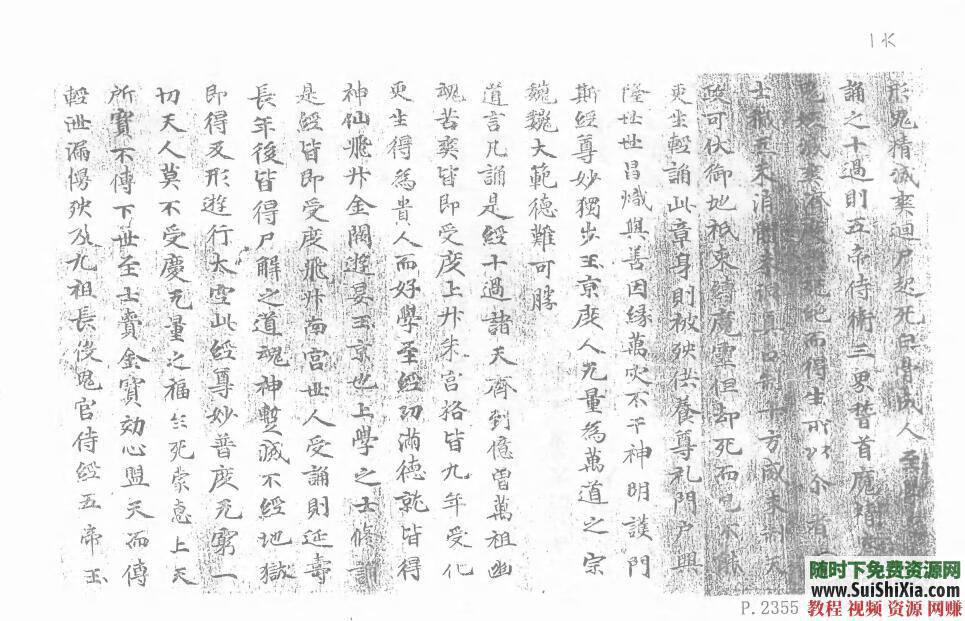 形鬼精滅爽迴尸起死白骨成人至學
誦之十過則五帝侍衛三界稽首魔
鬼 滅爽 度 絕而得生所以尒者
士 三天 十方 天
政可伏御地祇束縛魔靈但却死而已不能
更生輕誦此章身則被殃供養尊礼門户興
隆世世昌熾與善因緣萬灾不干神明護門
斯經尊妙獨步玉京度人无量為萬道之宗
巍巍大範德難可勝
道言凡誦是經十過諸天齊到億曾萬祖幽
魂苦爽皆即受度上升朱宫格皆九年受化
更生得為貴人而好學至經功滿德就皆得
神仙飛升金闕遊晏玉京也上學之士脩誦
是經皆即受度飛升南宫世人受誦則延壽
長年後皆得尸解之道魂神暫滅不經地獄
即得及形遊行太空此經尊妙普度无窮一
切天人莫不受慶无量之福生死蒙惠上天
所寶不傳下世至士賫金寶効心盟天而傳
輕泄漏慢殃及九祖長伇鬼官侍經五帝玉
P.2355
随时下免费资源网
www.SuiShiXia.com
教程 视频 资源 网赚